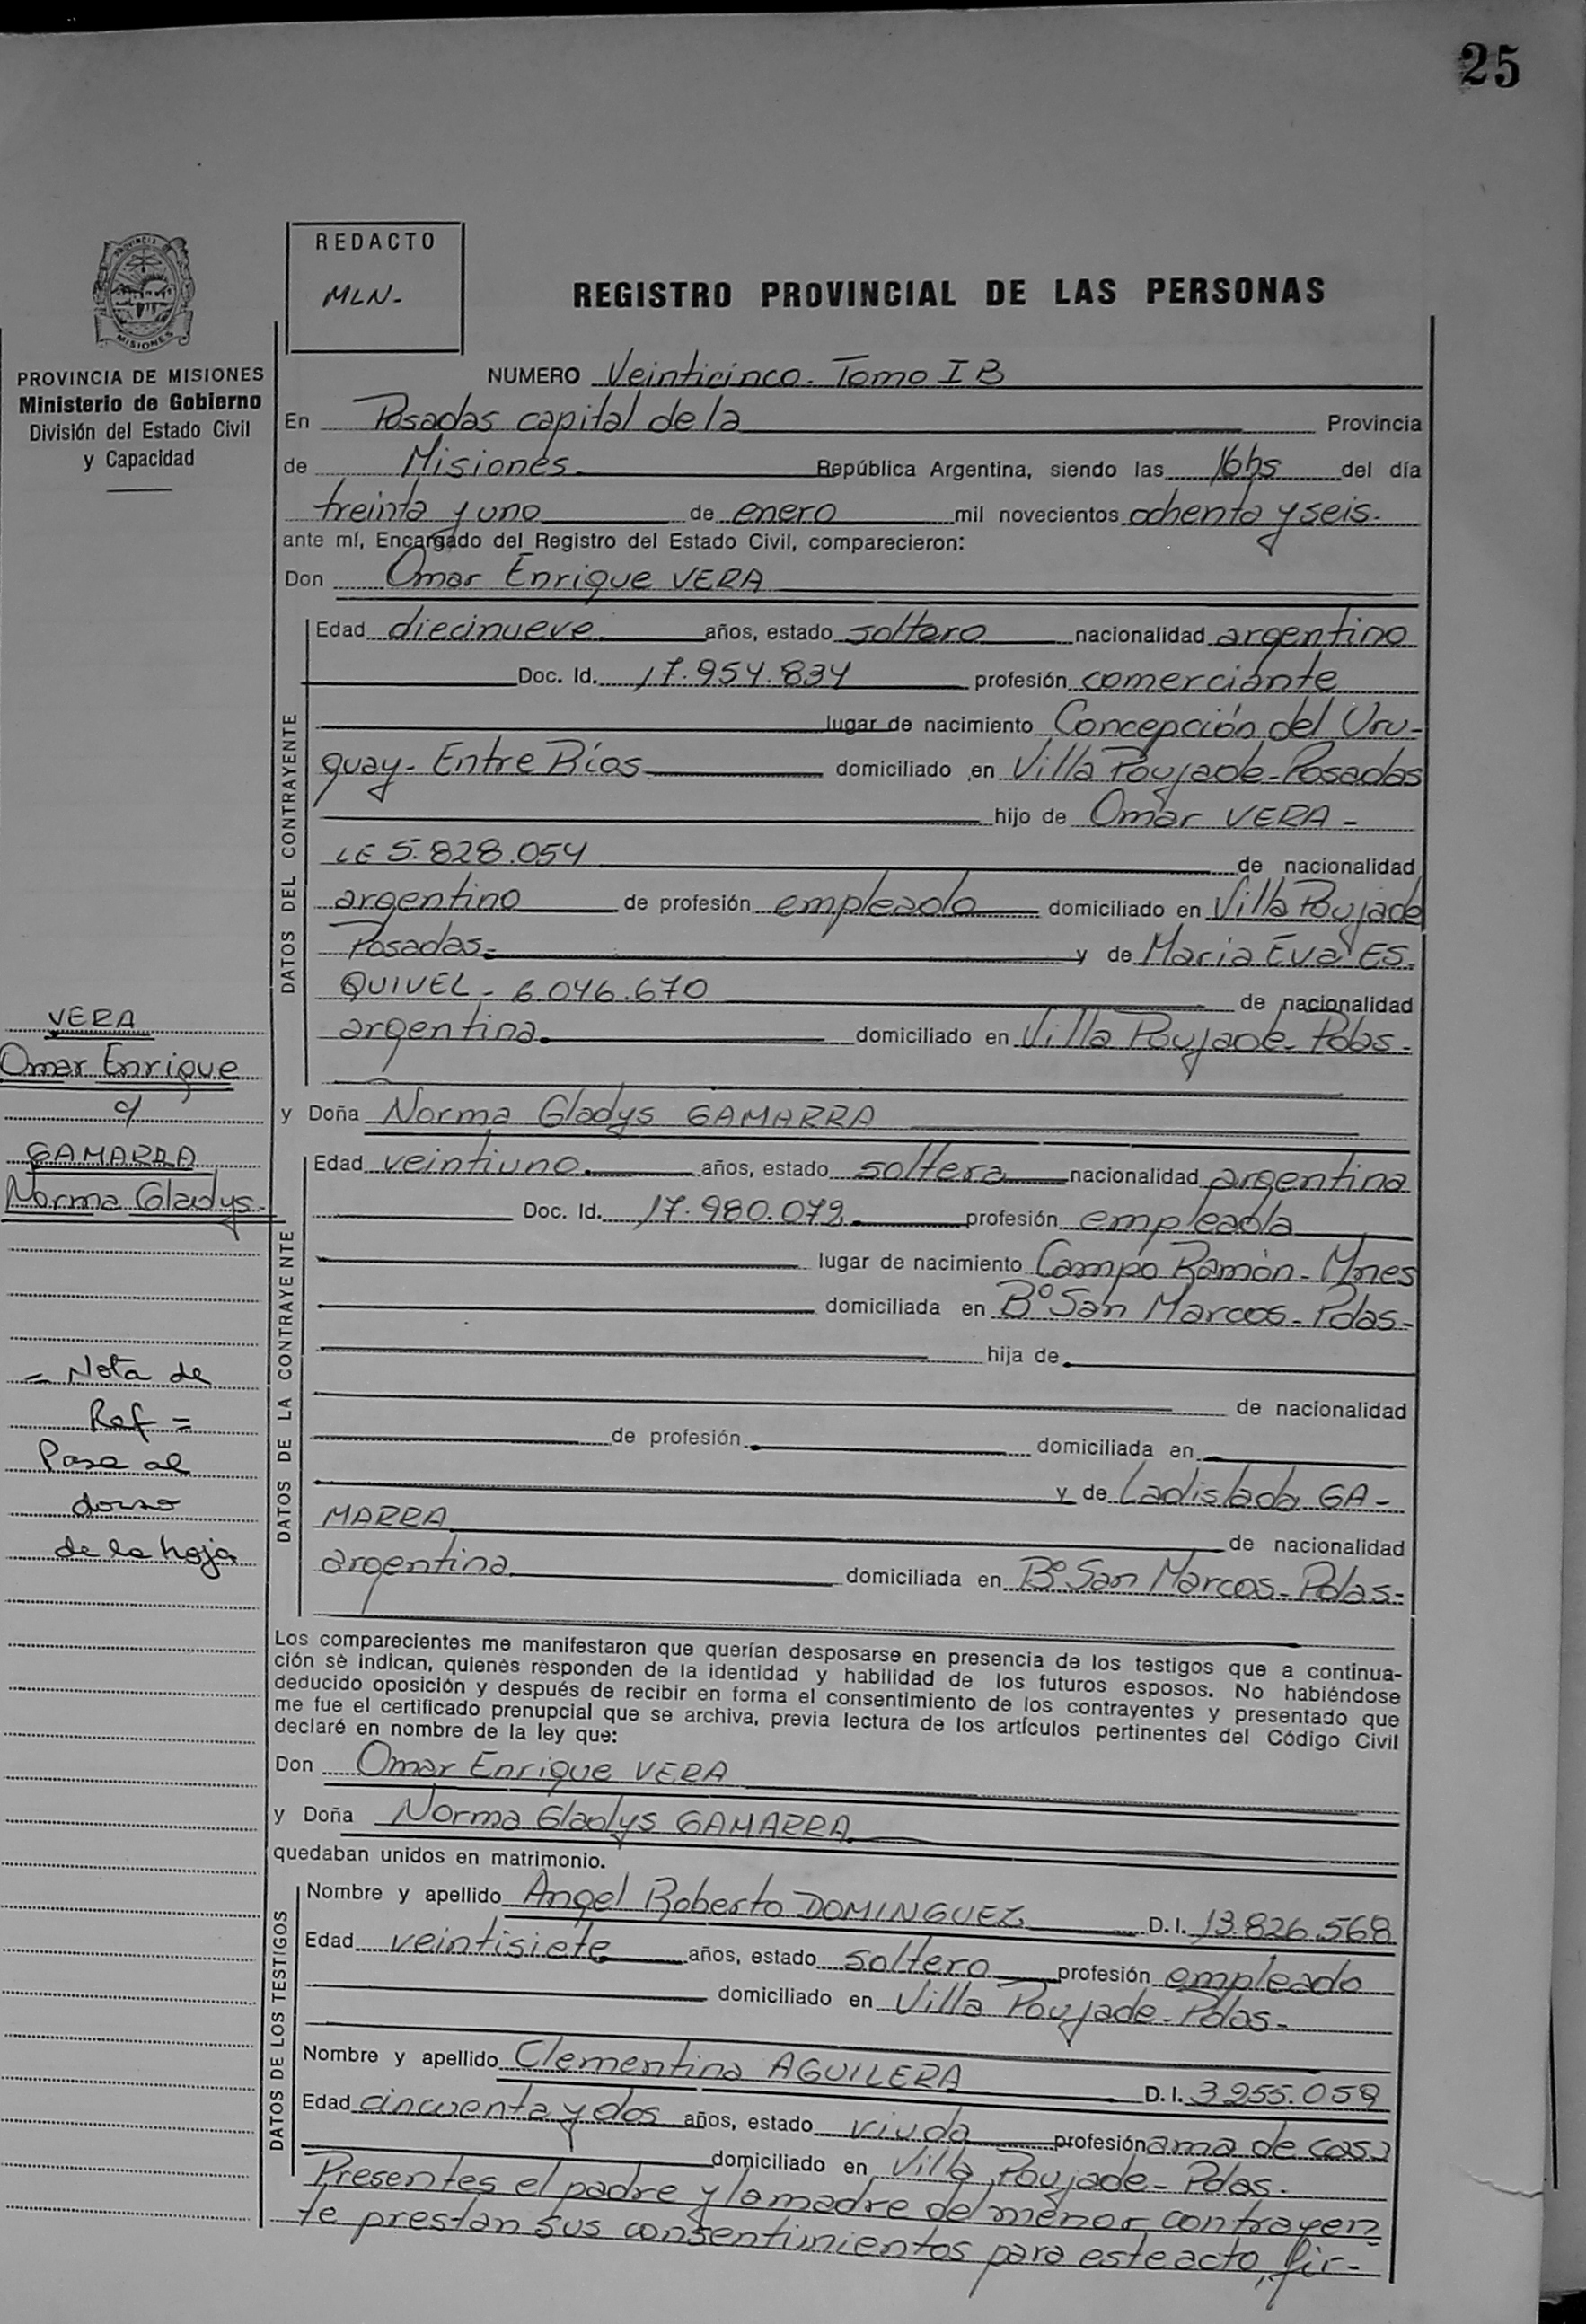 25
REDACTO
MLN-
REGISTRO PROVINCIAL DE LAS PERSONAS
PROVINCIA DE MISIONES
Ministerio de Gobierno
División del Estado Civil
y Capacidad
NUMERO Veinticinco. Tomo I B
En Posadas capital de la Provincia
de Misiones República Argentina, siendo las 16hs del día
treinta y uno de enero mil novecientos ochenta y seis.
ante mí, Encargado del Registro del Estado Civil, comparecieron:
Don Omar Enrique VERA
DATOS DEL CONTRAYENTE
Edad diecinueve años, estado soltero nacionalidad argentino
Doc. Id. 17.954.834 profesión comerciante
lugar de nacimiento Concepción del Uru-
guay- Entre Ríos domiciliado en Villa Poujade-Posadas
hijo de Omar VERA -
LE 5.828.054 de nacionalidad
argentino de profesión empleado domiciliado en Villa Poujade
Posadas- y de Maria Eva ES-
QUIVEL - 6.046.670 de nacionalidad
argentina domiciliado en Villa Poujade- Pdas-
VERA
Omar Enrique
c/
GAMARRA
Norma Gladys-
= Nota de
Ref =
Pasa al
dorso
de la hoja
y Doña Norma Gladys GAMARRA
DATOS DE LA CONTRAYENTE
Edad veintiuno años, estado soltera nacionalidad argentina
Doc. Id. 17.980.079 profesión empleada
lugar de nacimiento Campo Ramón- Mnes
domiciliada en Bº San Marcos- Pdas-
hija de
de nacionalidad
de profesión domiciliada en
y de Ladislada GA-
MARRA de nacionalidad
argentina domiciliada en Bº San Marcos- Pdas-
Los comparecientes me manifestaron que querían desposarse en presencia de los testigos que a continua-
ción se indican, quienes responden de la identidad y habilidad de los futuros esposos. No habiéndose
deducido oposición y después de recibir en forma el consentimiento de los contrayentes y presentado que
me fue el certificado prenupcial que se archiva, previa lectura de los artículos pertinentes del Código Civil
declaré en nombre de la ley que:
Don Omar Enrique VERA
y Doña Norma Gladys GAMARRA
quedaban unidos en matrimonio.
DATOS DE LOS TESTIGOS
Nombre y apellido Angel Roberto DOMINGUEZ D. I. 13.826.568
Edad veintisiete años, estado soltero profesión empleado
domiciliado en Villa Poujade- Pdas-
Nombre y apellido Clementina AGUILERA D. I. 3.255.059
Edad cincuenta y dos años, estado viuda profesión ama de casa
domiciliado en Villa Poujade- Pdas.
Presentes el padre y la madre del menor contrayen
te prestan sus consentimientos para este acto, fir-